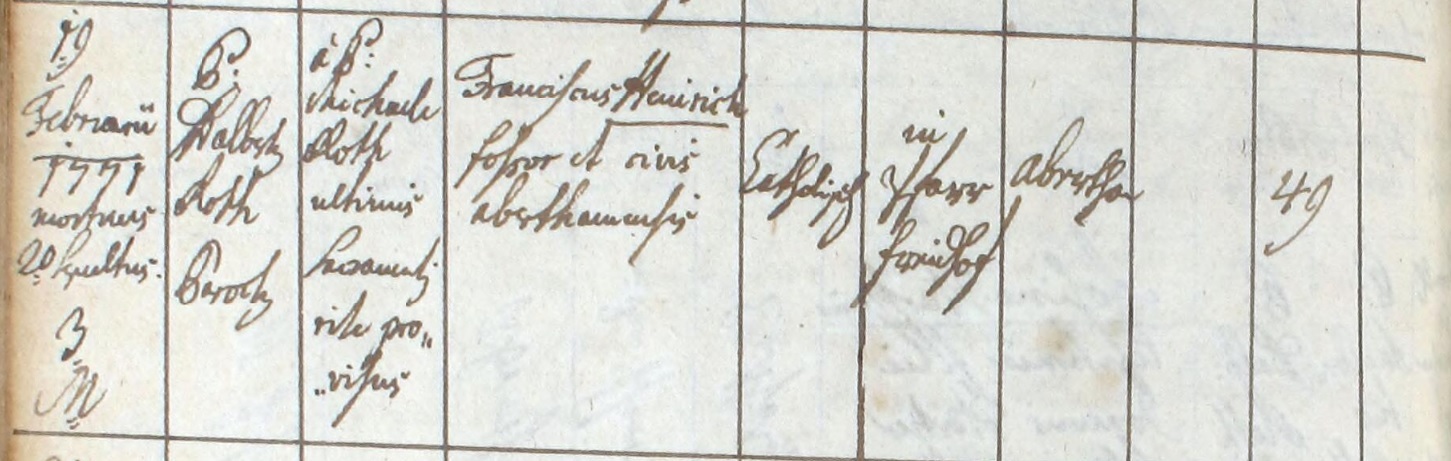 19
Februarii
1771
mortuus
20 sepultus.
3
M
P:
Roth
Parochus
à P:
Michaele
Roth
ultimis
Sacramentis
rite pro„
„visus
Franciscus Heinrich
fossor et civis
aberthamensis
Catholisch
in
Pfarr
freidhof
aberthan
49